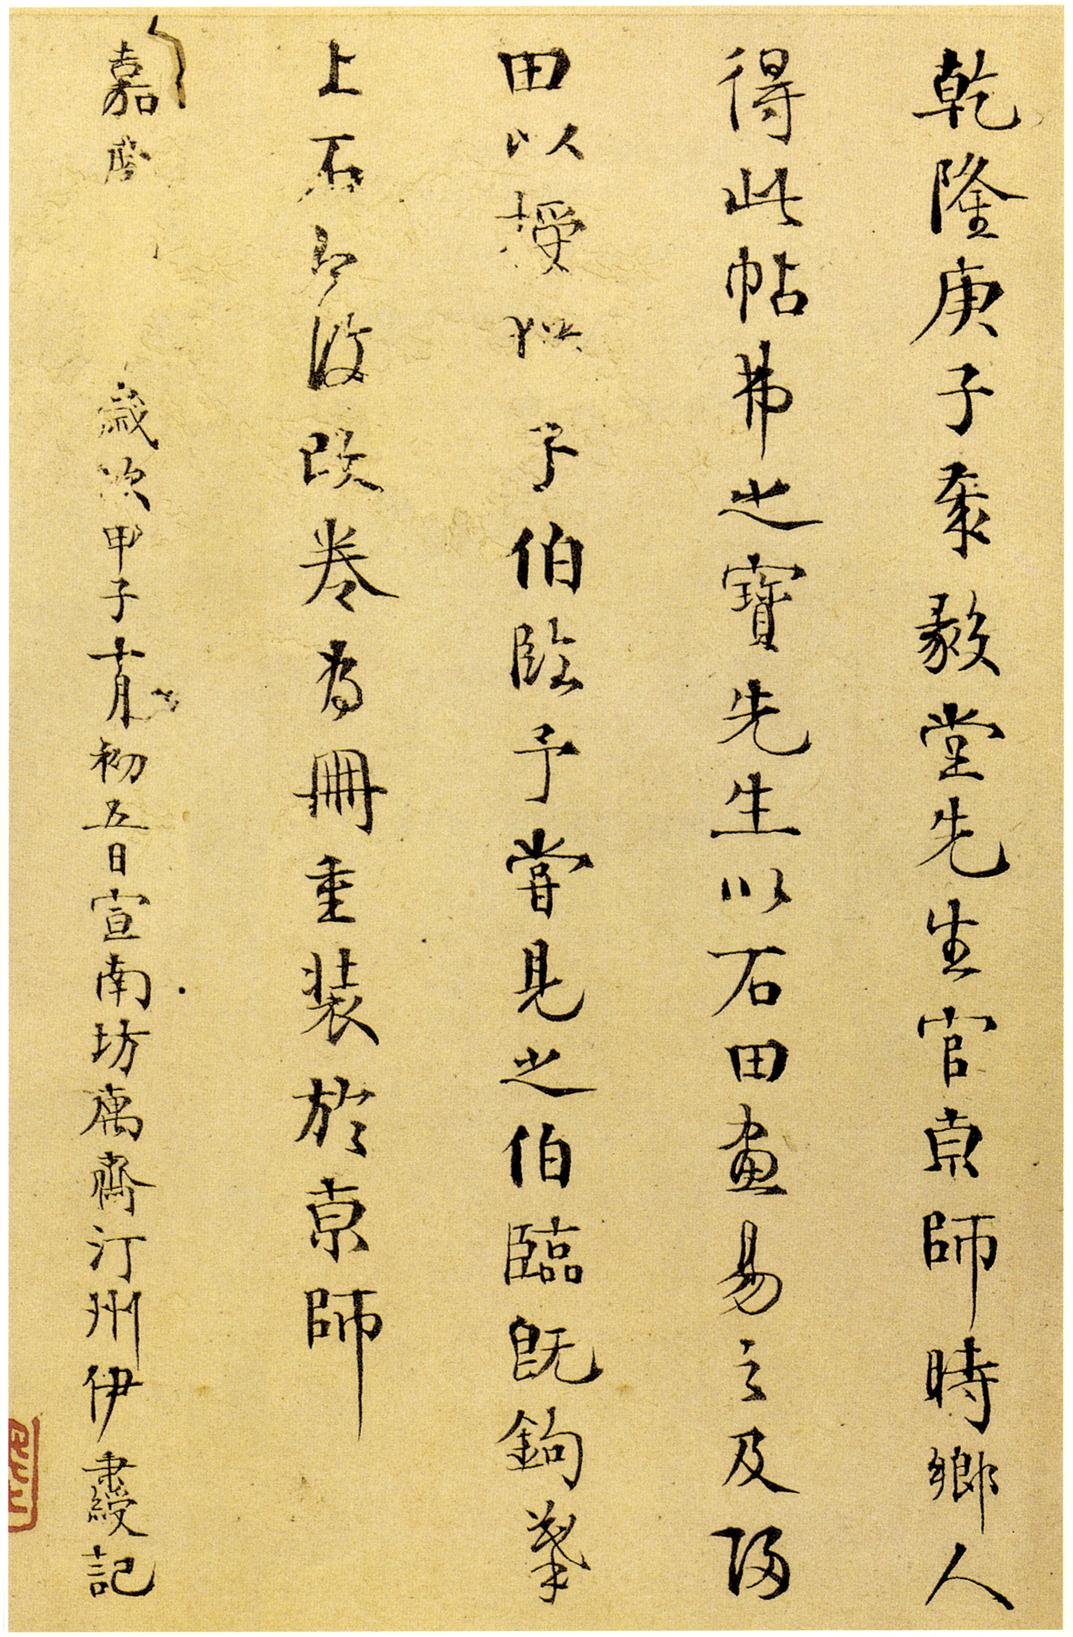 乾隆庚子秊毅堂先生官京師時鄉人
得此帖弗之寶先生以石田畫易之及歸
田以授 予伯臨予嘗見之伯臨既鉤摹
上石 後改卷為冊重裝於京師
嘉慶 歲次甲子十月初五日宣南坊寓齋汀州伊秉綬記